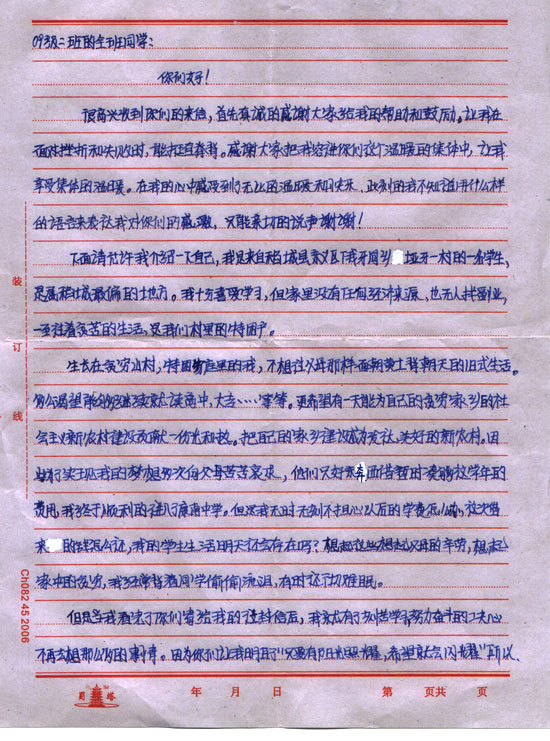 09级二班的全班同学:
你们好!
很高兴收到你们的来信,首先真诚的感谢大家给我的帮助和鼓励。让我在
面对挫折和失败时,能打起精神。感谢大家把我容进你们这个温暖的集体中,让我
享受集体的温暖。在我的心中感受到了无比的温暖和快乐,此刻的我不知道用什么样
的语言来表达我对你们的感激,只能亲切的说声谢谢!
下面请允许我介绍一下自己,我是来自稻城县 一村的一名学生,
是属稻城最偏的土地方。我十分喜爱学习,但家里没有任何经济来源,也无人找副业,
一直过着贫苦的生活,是我们村里的特困户。
生长在贫穷山村,特困家庭里的我,不想过父母那样面朝黄土背朝天的旧式生活。
多么渴望能够继续读高中,大学……等等。更希望有一天能为自己的贫穷家乡的社
会主义新农村建设贡献一份光和热。把自己的家乡建设成为发达,美好的新农村。因
此为实现我的梦想多次向父母苦苦哀求,他们只好 借暂时凑够这学年的
费用,我终于顺利的进了康南中学。但是我无时无刻不担心以后的学费怎么办,这次借
来 的钱怎么还,我的学生生活明天还会存在吗?想起这些想起父母的辛劳,想起
家中的贫穷,我经常背着同学偷偷流泪,有时还彻夜难眠。
但是当我看完了你们寄给我的这封信后,我就有了刻苦学习努力奋斗的决心
不再去想那么多的事情。因为你们让我明白了“只要有阳光照耀,希望就会闪耀”所以、
装
订
线
Ch082 45 2006
蜀塔
年 月 日 第 页共 页